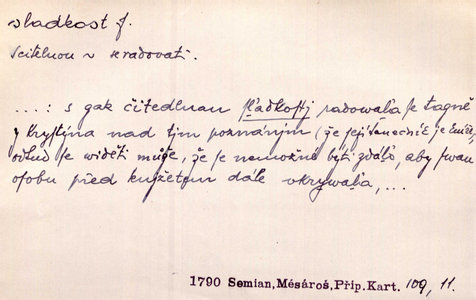 sladkost f.
scitelnou s. zradovati.
...: s gak čitedlnau sladkosti radowala se tagně
y Krystýna nad tjm poznánjm (že její Tanečník je Emil,
odkud se widěti může, že je nemožné býti zdálo, aby swau
osobu před knjžetem dále vkrywala, ...
1790 Semian, Mésároš, Příp. Kart. 109, 11.